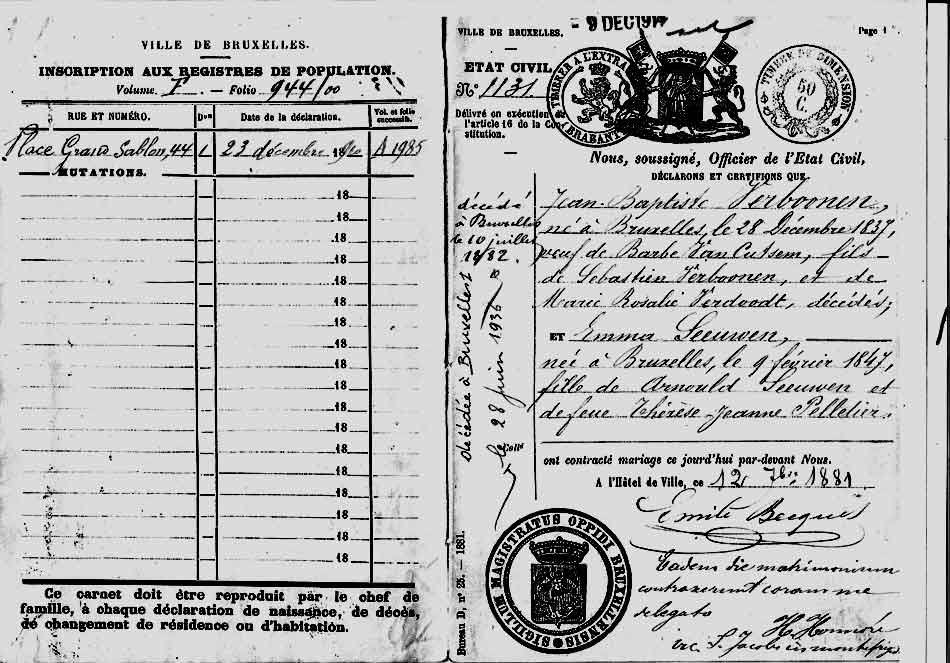 VILLE DE BRUXELLES.
INSCRIPTION AUX REGISTRES DE POPULATION.
Volume F. — Folio 944/00
RUE ET NUMÉRO.
Date de la déclaration.
Vol. et folio successifs.
Place Grand Sablon, 44 1 23 décembre A 1985
MUTATIONS.
18
18
18
18
18
18
18
18
18
18
18
18
18
18
18
18
18
18
Ce carnet doit être reproduit par le chef de
famille, à chaque déclaration de naissance, de décès,
de changement de résidence ou d'habitation.
- 9 DEC 191
VILLE DE BRUXELLES.
Page 1
ETAT CIVIL
N° 1131
Délivré en exécution
l'article 16 de la Con
stitution.
TIMBRER A L'EXTRA
BRABANT
TIMBRE DE DIMENSION
50
C.
Nous, soussigné, Officier de l'Etat Civil,
DÉCLARONS ET CERTIFIONS QUE
Jean-Baptiste Verboonen,
né à Bruxelles, le 28 Décembre 1837,
veuf de Barbe Van Cutsem, fils
de Sébastien Verboonen, et de
Marie Rosalie Verdoodt, décédés;
ET Emma Leeuwen,
née à Bruxelles, le 9 février 1847,
fille de Arnould Leeuwen et
de feue Thérèse-Jeanne Pelletier.
décédé
à Bruxelles
le 10 juillet
décédée à Bruxelles
le 28 juin 1936
ont contracté mariage ce jourd'hui par-devant Nous.
A l'Hôtel de Ville, ce 12 7bre 1881
SIGILLUM MAGISTRATUS OPPIDI BRUXELLENSIS
Eadem die matrimonium
contraxerunt coram me
delegato
Bureau D, n° 25. — 1881.